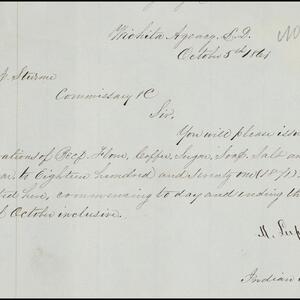 Wichita Agency, L.D.
October 5th 1861
J. Sturm
Commissary &C
Sir.
You will please issu
rations of Beef, Flour, Coffee, Sugar, Soap, Salt an
ar. to Eighteen hundred and Seventy one (1871)
ted here, commencing to day and ending th
of October inclusive.
M.
Indian